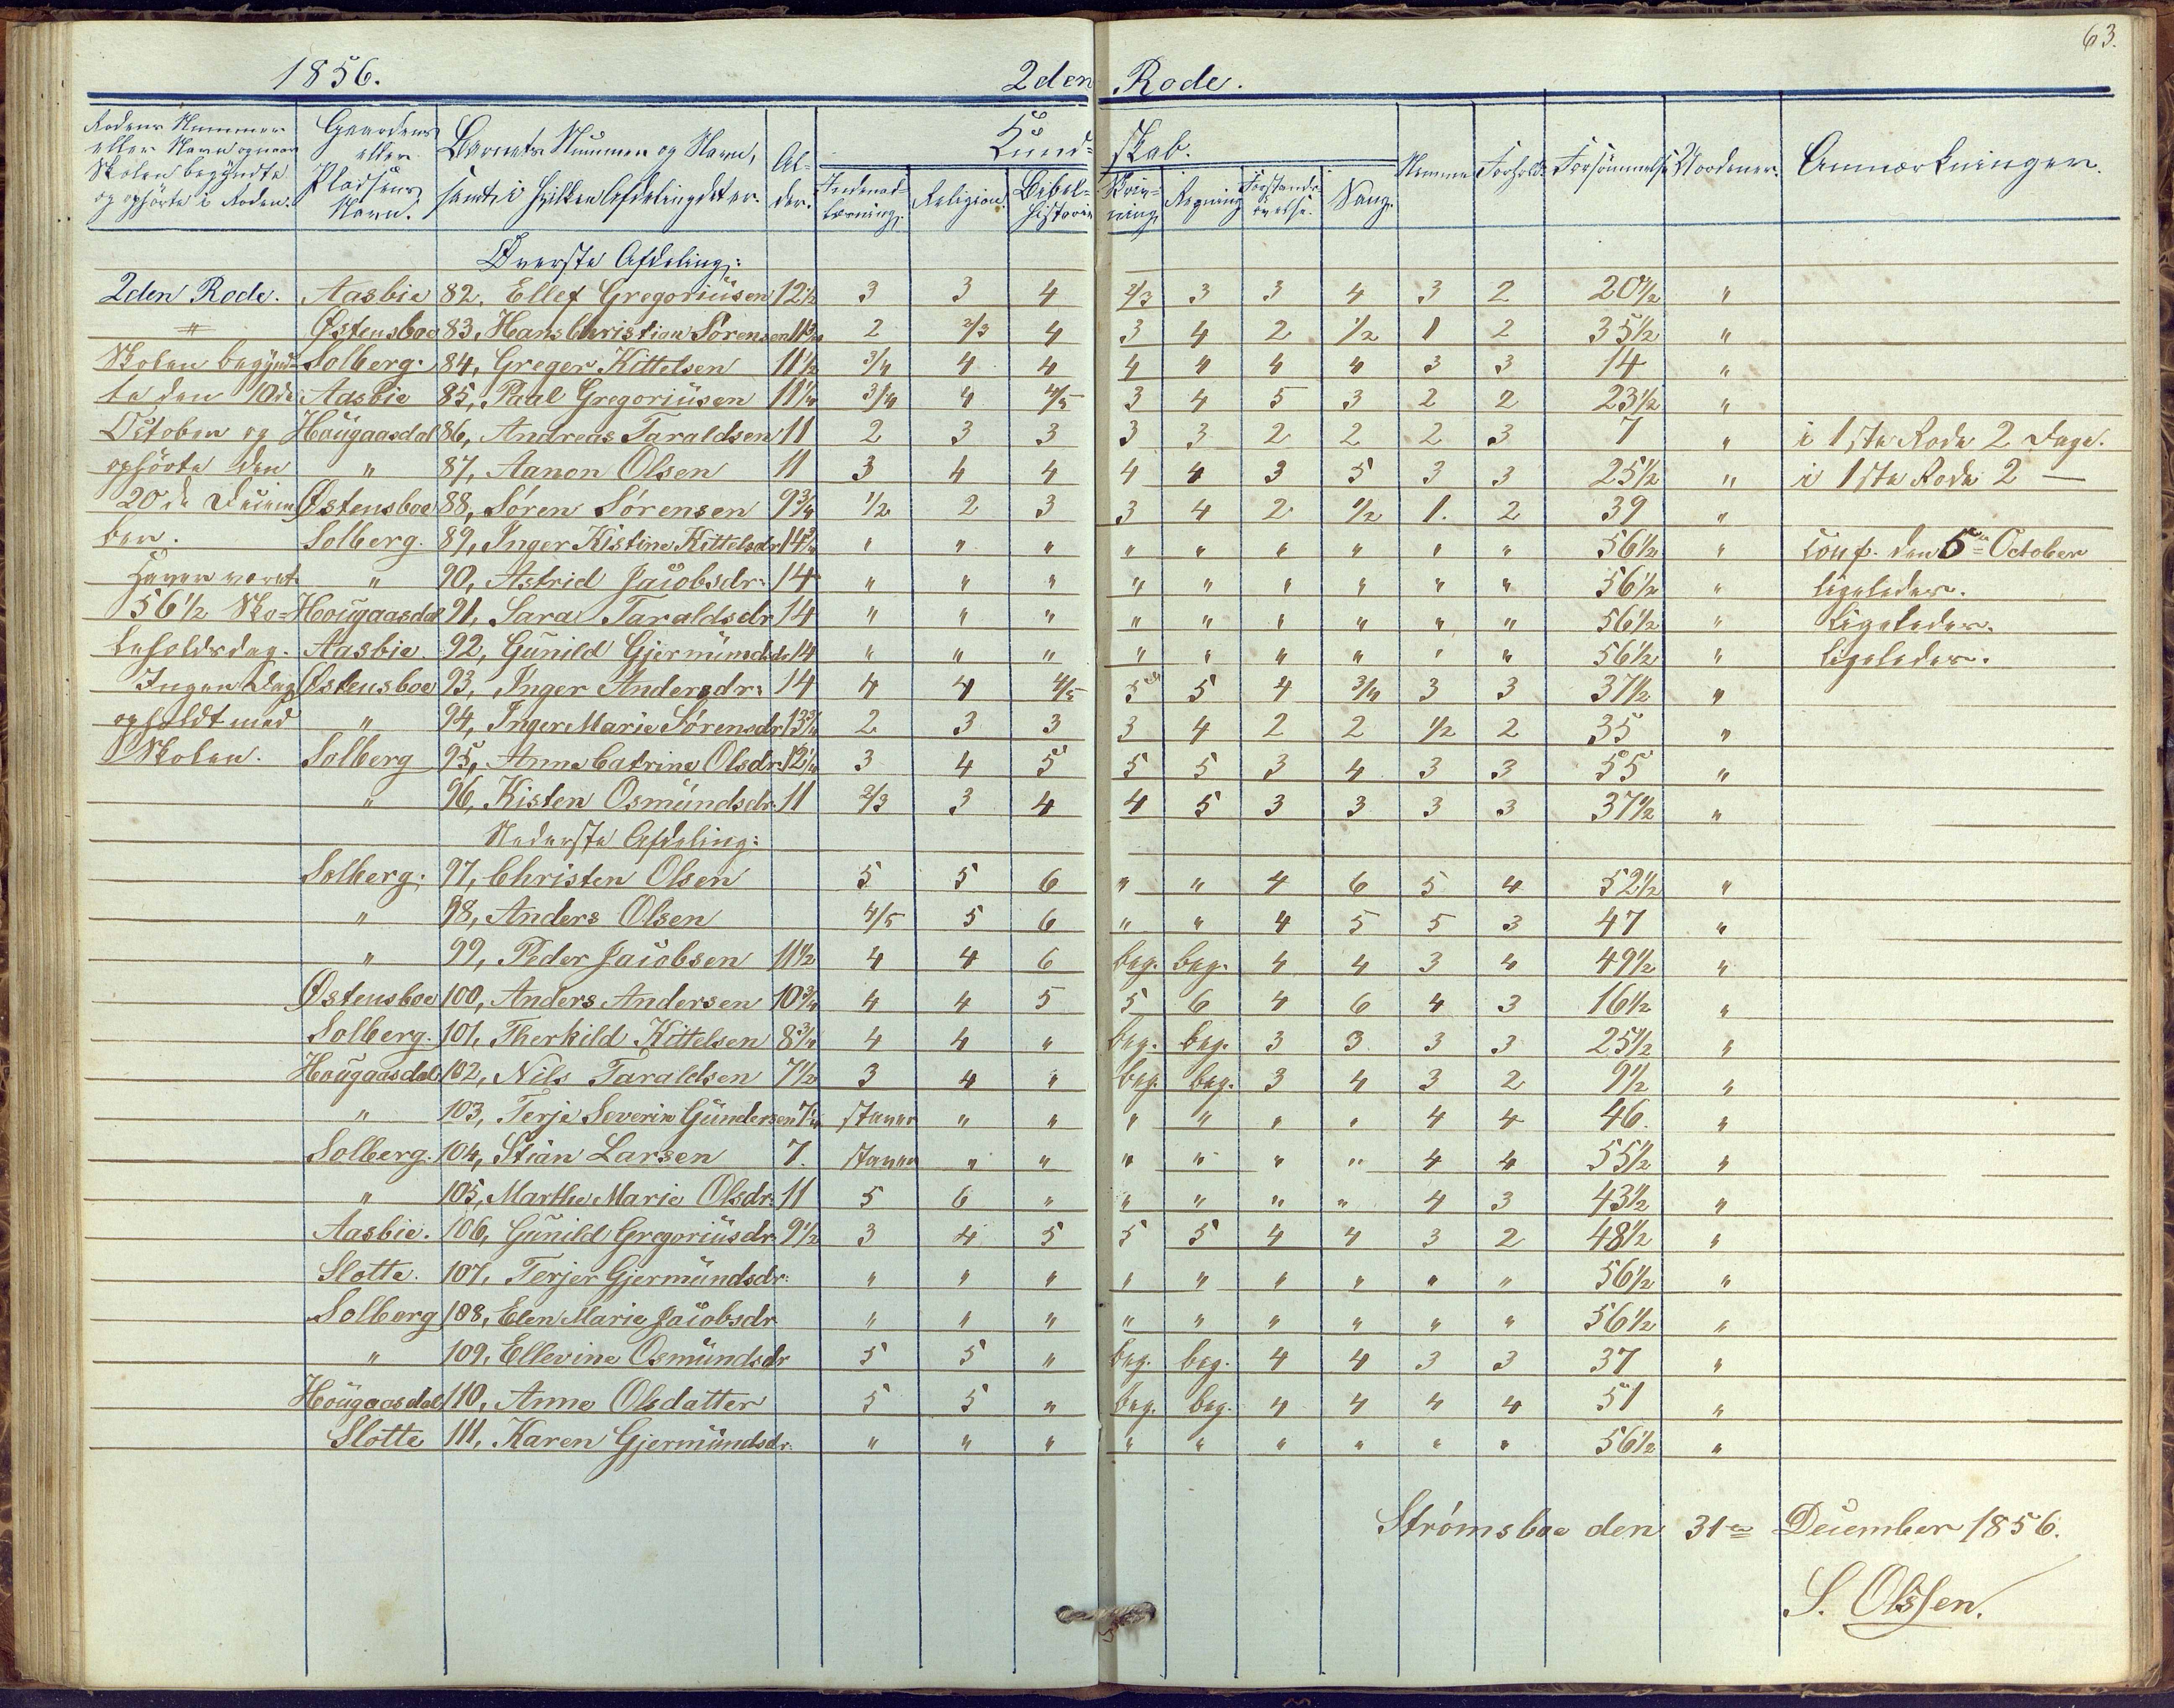 63.
1856. 2den Rode.
Rodens Nummer eller Navn og naar Skolen begyndte og ophörte i Roden. Gaardens eller Pladsens Navn. Barnets Nummer og Navn, samt i hvilken Afdeling det er. Al-der. Kund-skab. Nemme Forhold. Forsömmelse Uordener. Anmærkninger.
Indenad-læsning. Religion. Bibel-historie Skriv-ning. Regning Forstands-øvelse. Sang.
Øverste Afdeling:
2den Rode. Aasbie 82, Ellef Gregoriusen 12½ 3 3 4 2/3 3 3 4 3 2 20½ "
" Østensboe 83, Hans Christian Sørensen 11¾ 2 2/3 4 3 4 2 1/2 1 2 35½ "
Skolen begynd- Solberg. 84, Greger Kittelsen 11½ 3/4 4 4 4 4 4 4 3 3 14 "
te den 10de Aasbie 85, Paul Gregoriusen 11¼ 3/4 4 4/5 3 4 5 3 2 2 23½ "
October og Hougaasdal 86, Andreas Taraldsen 11 2 3 3 3 3 2 2 2 3 7 " i 1ste Rode 2 Dage.
ophörte den " 87, Aanon Olsen 11 3 4 4 4 4 3 5 3 3 25½ " i 1ste Rode 2 —
20de Decem Østensboe 88, Søren Sørensen 9¾ 1/2 2 3 3 4 2 1/2 1. 2 39 "
ber. Solberg. 89, Inger Kistine Kittelsdr 14¾ " " " " " " " " " 56½ " Conf. den 5te October
Haver været " 90, Astrid Jacobsdr. 14 " " " " " " " " " 56½ " ligeledes.
56½ Sko- Hougaasdal 91, Sara Taraldsdr 14 " " " " " " " " " 56½ " Ligeledes.
leholdsdag. Aasbie. 92, Gunild Gjermundsdr 14 " " " " " " " " " 56½ " ligeledes.
Ingen Dag Østensboe 93, Inger Andersdr. 14 4 4 4/5 5 5 4 3/4 3 3 37½ "
opholdt med " 94, Inger Marie Sørensdr 13¾ 2 3 3 3 4 2 2 1/2 2 35 "
Skolen. Solberg 95, Anne Catrine Olsdr. 12¼ 3 4 5 5 5 3 4 3 3 55 "
" 96, Kisten Osmundsdr. 11 2/3 3 4 4 5 3 3 3 3 37½ "
Nederste Afdeling:
Solberg. 97, Christen Olsen 5 5 6 " " 4 6 5 4 52½ "
" 98, Anders Olsen 4/5 5 6 " " 4 5 5 3 47 "
" 99, Peder Jacobsen 11½ 4 4 6 beg. beg. 4 4 3 4 49½ "
Østensboe 100, Anders Andersen 10¾ 4 4 5 5 6 4 6 4 3 16½ "
Solberg. 101, Therkild Kittelsen 8¾ 4 4 " beg. beg. 3 3 3 3 25½ "
Hougaasdal 102, Nils Taraldsen 7½ 3 4 " beg. beg. 3 4 3 2 9½ "
" 103, Terje Severin Gundersen 7¼ staver " " " " " " 4 4 46 "
Solberg. 104, Stian Larsen 7. staver " " " " " " 4 4 55½ "
" 105, Marthe Marie Olsdr. 11 5 6 " " " " " 4 3 43½ "
Aasbie. 106, Gunild Gregoriusdr. 9½ 3 4 5 5 5 4 4 3 2 48½ "
Slotte. 107, Terjer Gjermundsdr. " " " " " " " " " 56½ "
Solberg 108, Elen Marie Jacobsdr " " " " " " " " " 56½ "
" 109, Ellevine Osmundsdr 5 5 " beg. beg. 4 4 3 3 37 "
Hougaasdal 110, Anne Olsdatter 5 5 " beg. beg. 4 4 4 4 51 "
Slotte 111, Karen Gjermundsdr. " " " " " " " " " 56½ "
Strömsboe den 31te December 1856.
S. Olssen.